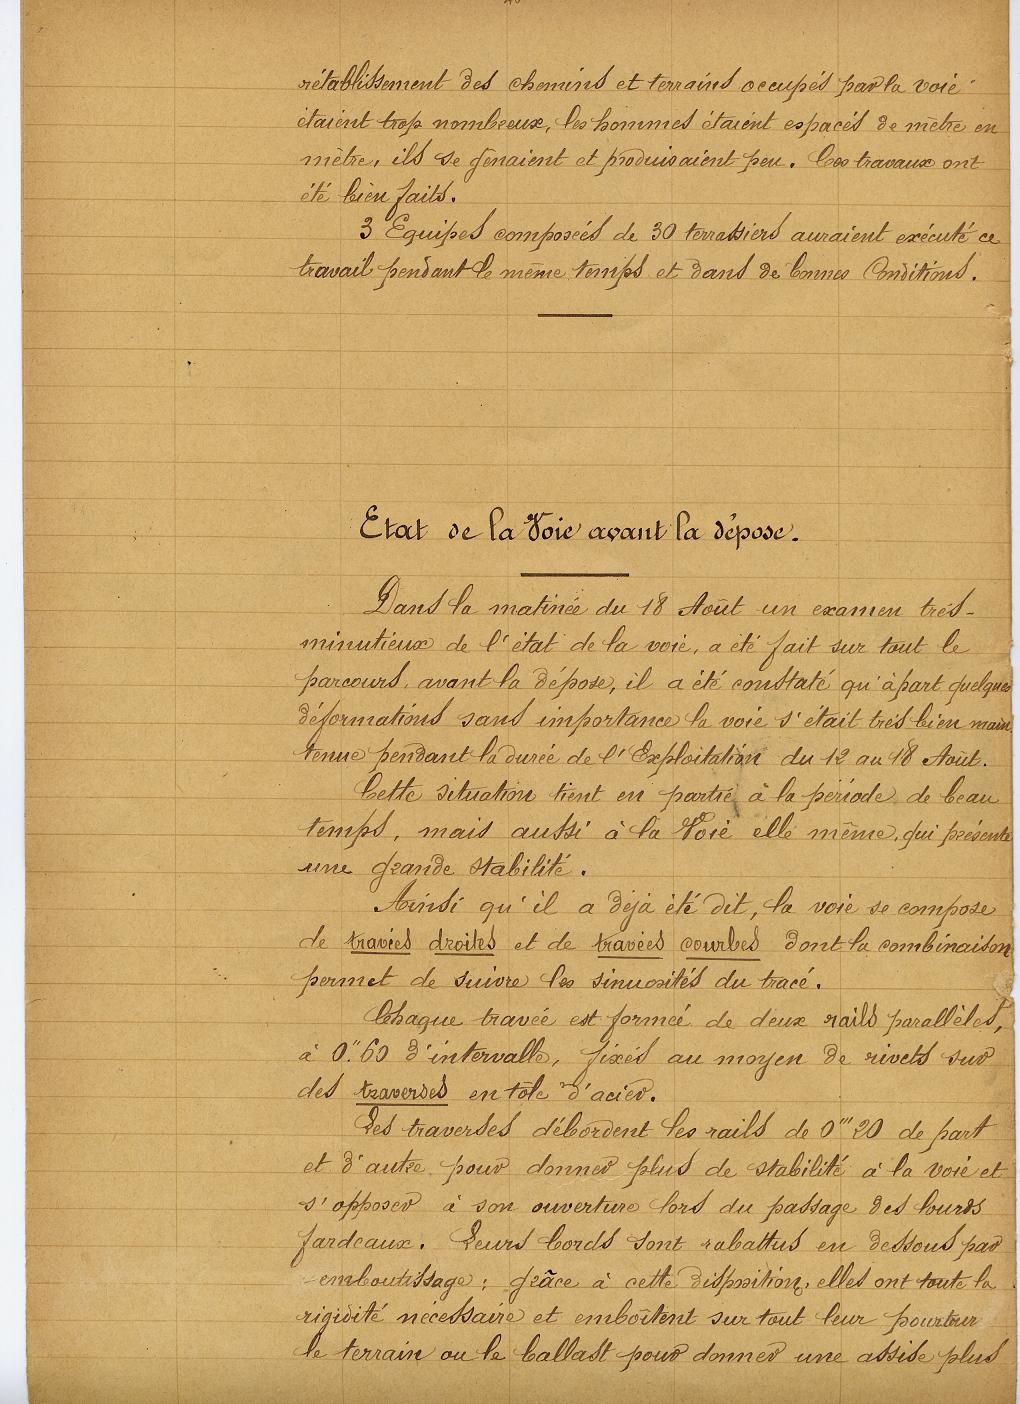 rétablissement des chemins et terrains occupés par la voie
étaient trop nombreux, les hommes étaient espacés de mètre en
mètre, ils se gênaient et produisaient peu. Ces travaux ont
été bien faits.
3 Equipes composées de 30 terrassiers auraient exécuté ce
travail pendant le même temps et dans de bonnes Conditions.
Etat de la Voie avant la dépose.
Dans la matinée du 18 Août un examen très-
minutieux de l'état de la voie, a été fait sur tout le
parcours, avant la dépose, il a été constaté qu'à part quelques
déformations sans importance la voie s'était très bien main
tenue pendant la durée de l'Exploitation du 12 au 18 Août.
Cette situation tient en partie à la période de beau
temps, mais aussi à la Voie elle même, qui présente
une grande stabilité.
Ainsi qu'il a déjà été dit, la voie se compose
de travées droites et de travées courbes dont la combinaison
permet de suivre les sinuosités du tracé.
Chaque travée est formée de deux rails parallèles,
à 0m.60 d'intervalle, fixés au moyen de rivets sur
des traverses en tôle d'acier.
Les traverses débordent les rails de 0m20 de part
et d'autre pour donner plus de stabilité à la voie et
s'opposer à son ouverture lors du passage des lourds
fardeaux. Leurs bords sont rabattus en dessous par
emboutissage ; grâce à cette disposition, elles ont toute la
rigidité nécessaire et emboîtent sur tout leur pourtour
le terrain ou le ballast pour donner une assise plus